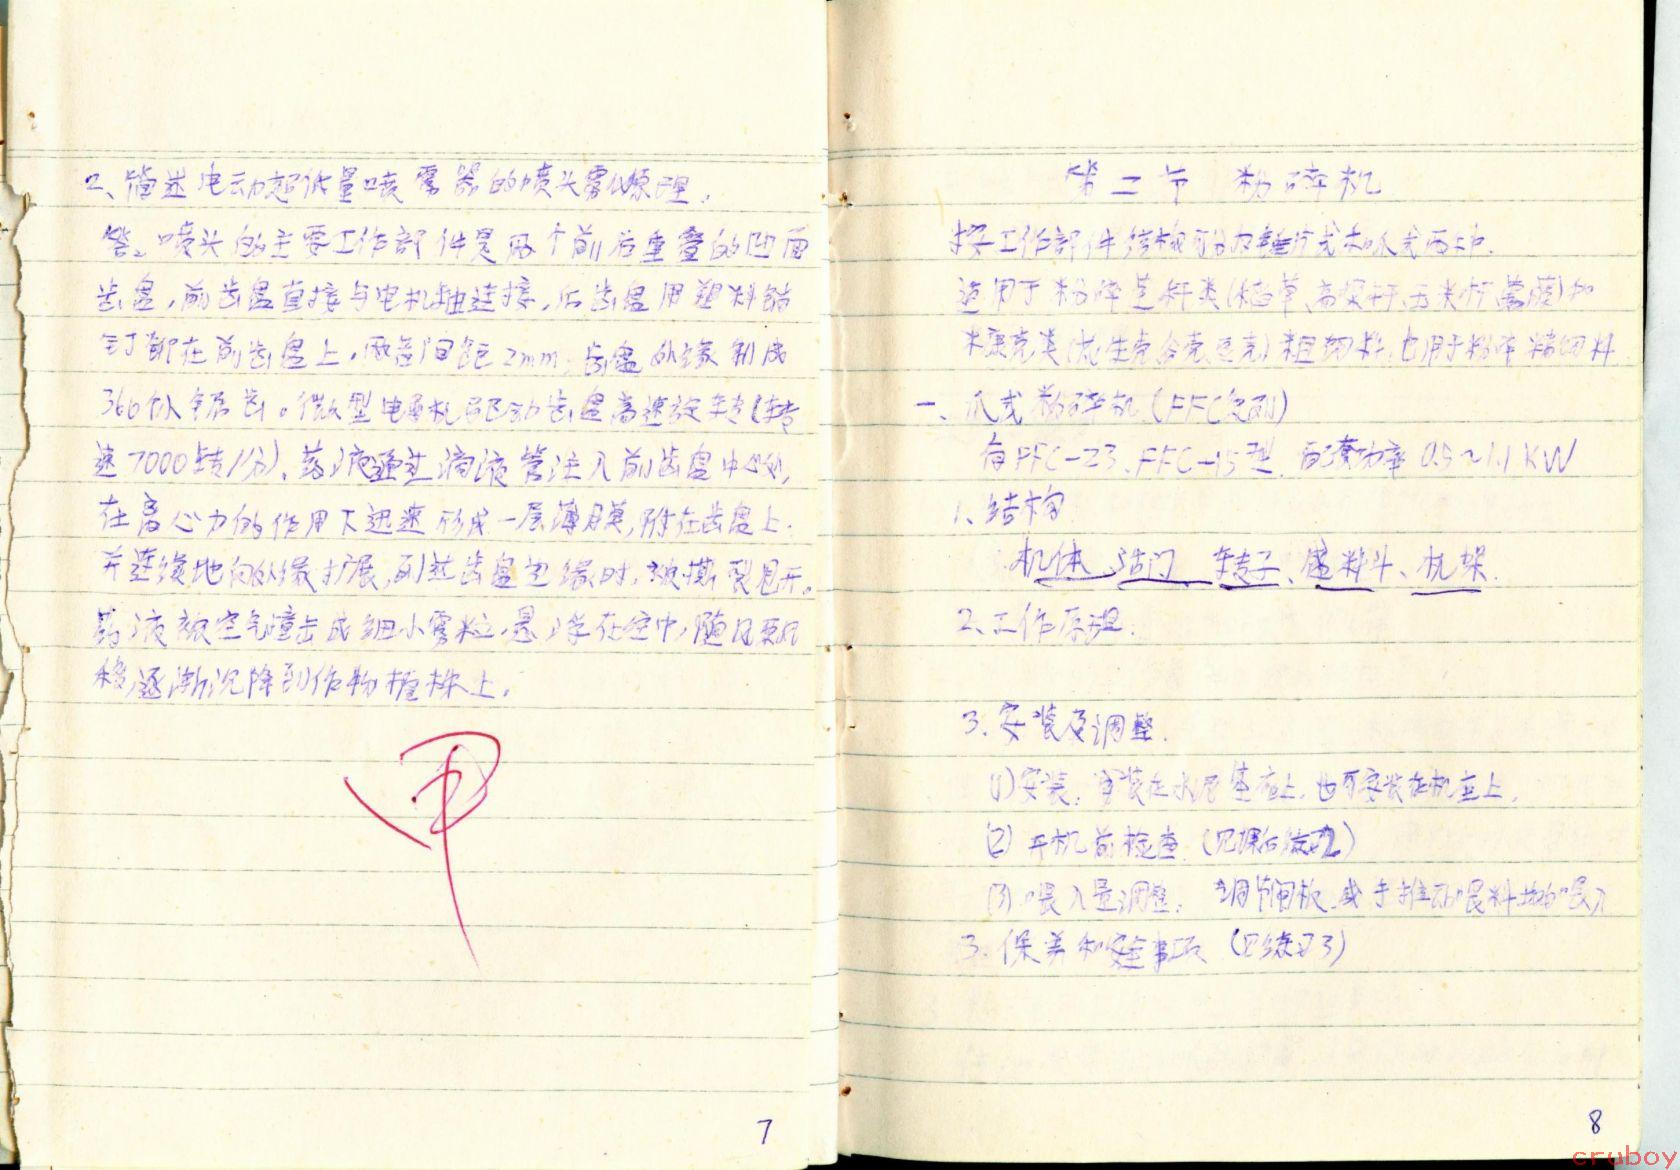 2、简述电动超低量喷雾器的喷头雾化原理。
答。喷头的主要工作部件是两个前后重叠的凹面
齿盘,前齿盘直接与电机轴连接,后齿盘用塑料铆
钉铆在前齿盘上,两盘间距2mm,齿盘外缘制成
360个锯齿。微型电机驱动齿盘高速旋转(转
速7000转/分)、药液通过滴液管注入前齿盘中心处,
在离心力的作用下迅速形成一层薄膜,附在齿盘上.
并连续地向外缘扩展,到达齿盘边缘时,被撕裂甩开。
药液被空气撞击成细小雾粒,悬浮在空中,随风飘
移,逐渐沉降到作物植株上。
甲
7
第二节 粉碎机
按工作部件结构可分为锤片式和爪式两种.
适用于粉碎茎秆类(稻草、高粱秆、玉米秆、薯藤)和
米糠壳类(花生壳、谷壳、豆壳)粗饲料,也用于粉碎精饲料
一、爪式粉碎机(FFC系列)
有FFC-23、FFC-15型,配套功率0.5~1.1KW
1、结构
机体、活门、转子、盛料斗、机架.
2、工作原理.
3.安装及调整.
(1)安装:安装在水泥基座上,也可安装在机座上.
(2)开机前检查.(见课后练习2)
(3)喂入量调整: 调节闸板.或手推动喂料均匀喂入
3.保养和安全事项(见练习3)
8
cruboy